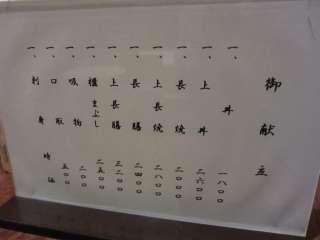 御献立
一、丼 一八〇〇
一、上丼 二六〇〇
一、長焼 二〇〇〇
一、上長焼 二八〇〇
一、長膳 二四〇〇
一、上長膳 三二〇〇
一、櫃まぶし 二五〇〇
一、吸物 二〇〇
一、口取 五〇〇
一、刺身 時価